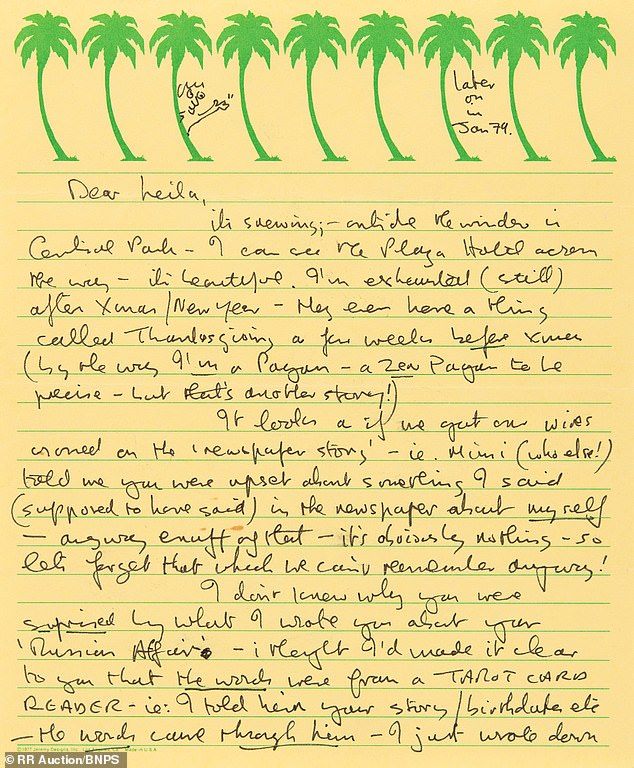 later
on
in
Jan 79.
Dear Leila,
it's snewing;- outside the window in
Central Park - I can see the Plaza Hotel across
the way - it's beautiful. I'm exhausted (still)
after Xmas/New Year - they even have a thing
called Thanksgiving a few weeks before Xmas
(by the way I'm a Pagan - a Zen Pagan to be
precise - but that's another story!)
It looks as if we got our wires
crossed on the 'newspaper story' - ie. Mimi (who else!)
told me you were upset about something I said
(supposed to have said) in the newspaper about myself
- anyway enuff of that - it's obviously nothing - so
lets forget that which we can't remember anyway!
I don't know why you were
suprised by what I wrote you about your
'Russian Affair' - i thought I'd made it clear
to you that the words were from a TAROT CARD
READER - ie: I told him your story/birthdates etc
- the words came through him - I just wrote down
©1977 Jeremy Designs, Inc. Made in U.S.A
© RR Auction/BNPS